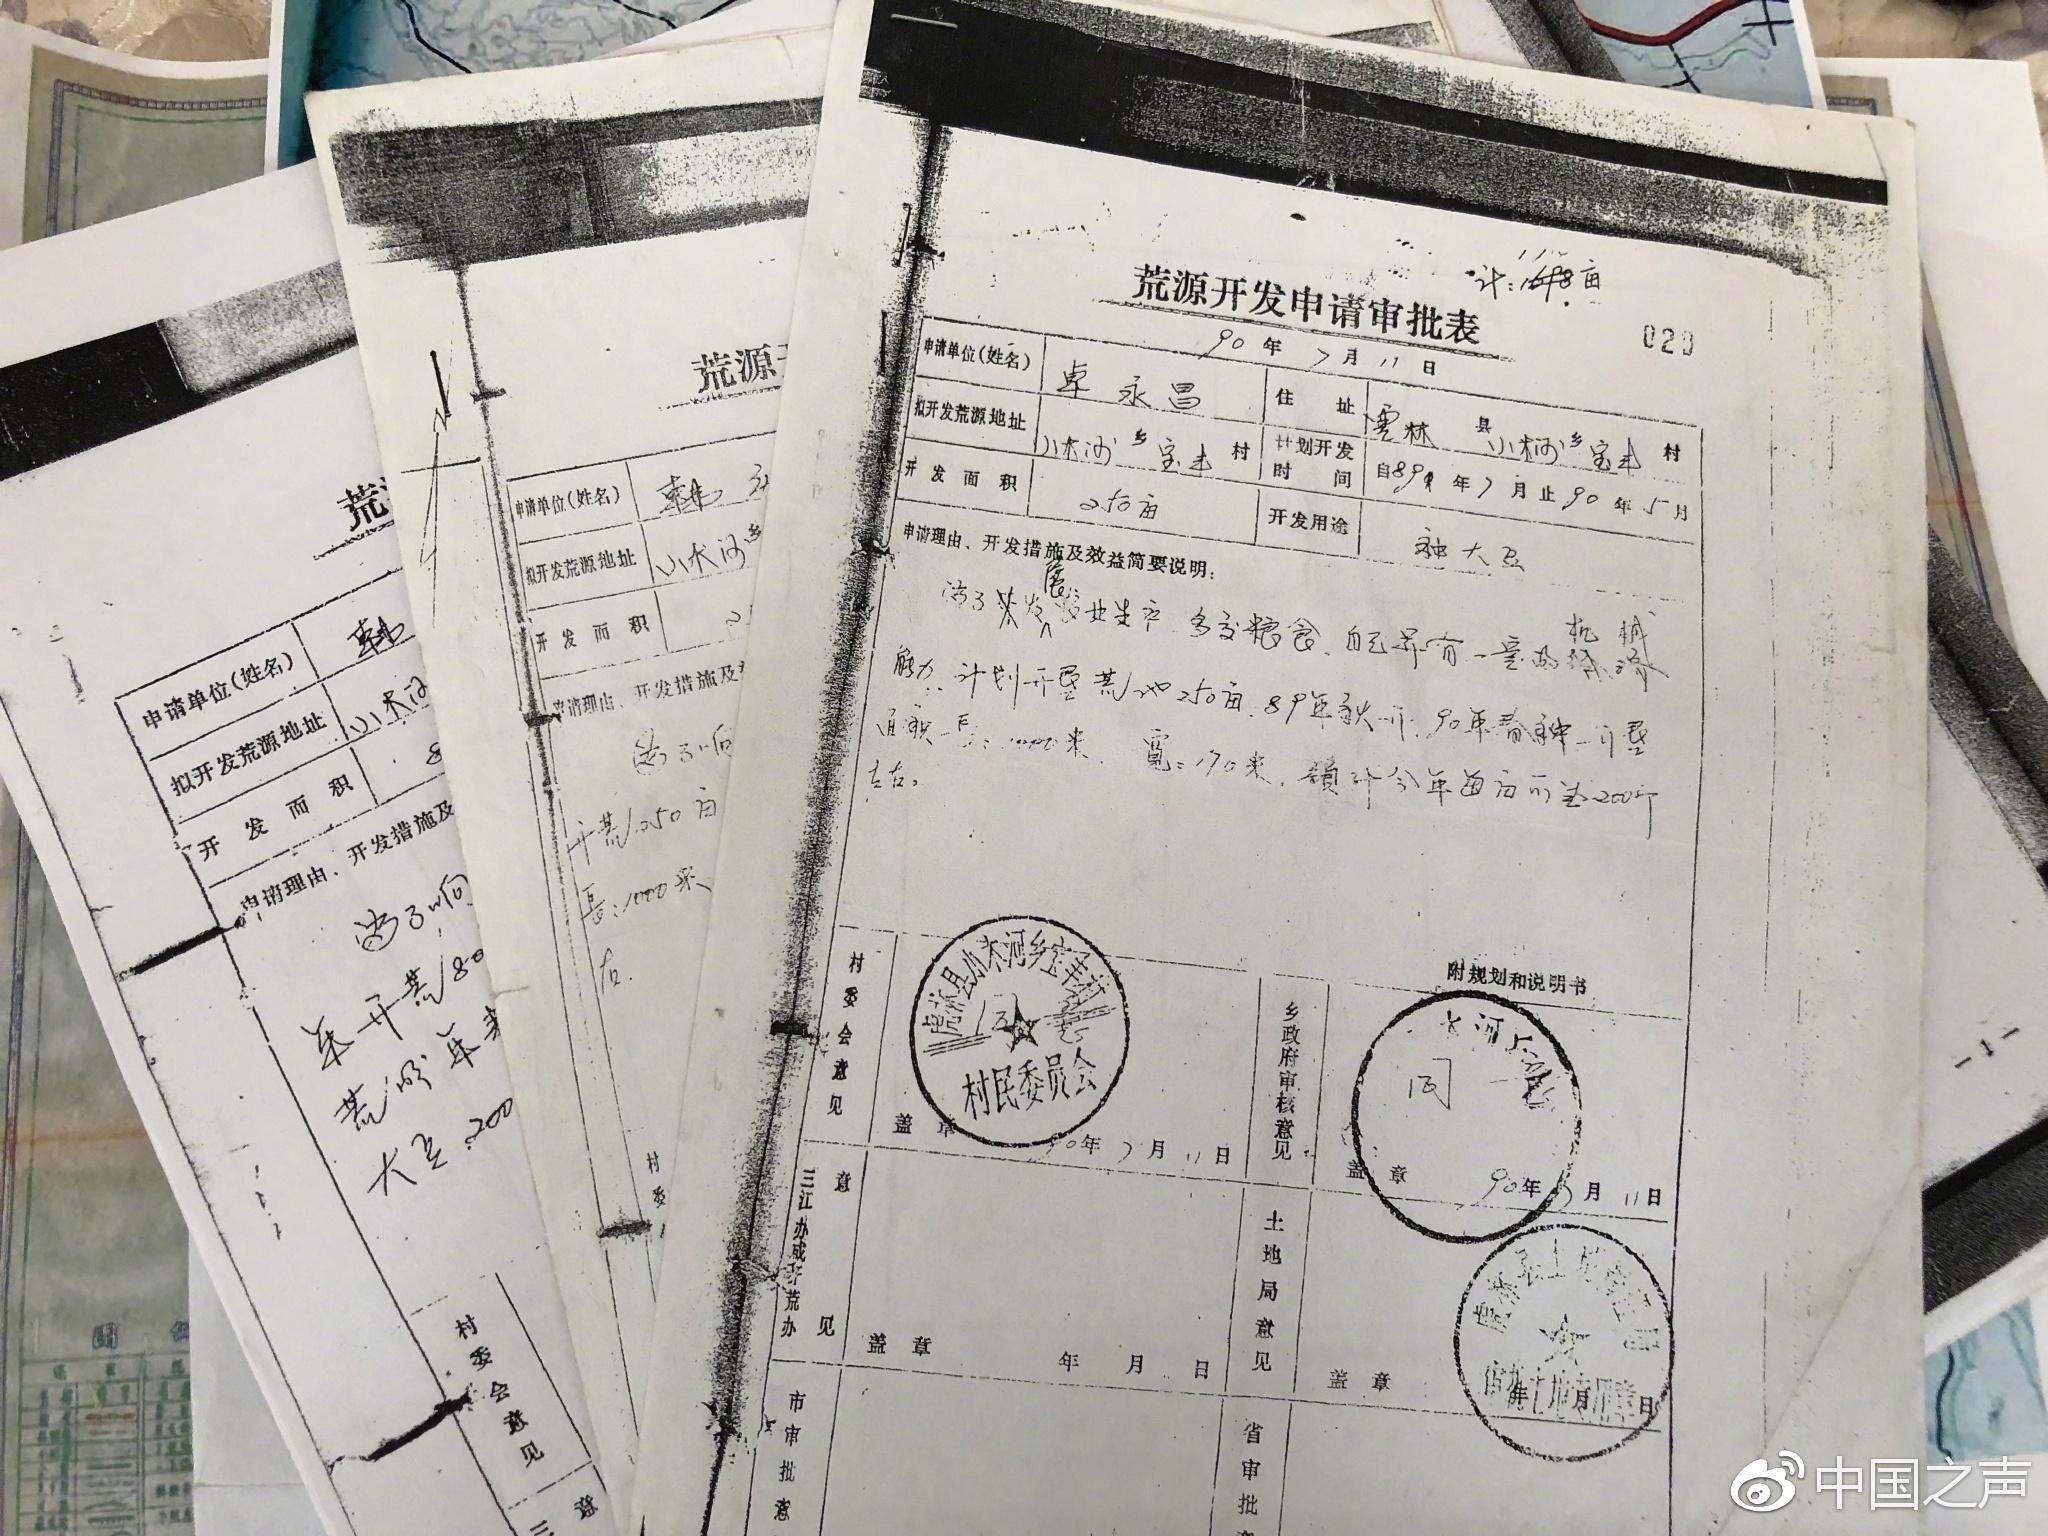 荒源开发申请审批表
计:1698亩
020
90年7月11日
申请单位(姓名) 卓永昌 住址 虎林县小木河乡宝丰村
拟开发荒源地址 小木河乡宝丰村 计划开发时间 自89年7月止90年5月
开发面积 250亩 开发用途 种大豆
申请理由、开发措施及效益简要说明:
为了发展农业生产 多交粮食,自己具有一定的机械
能力,计划开垦荒地250亩,89年秋开,90年春种,开垦
面积 长:1000米,宽:170米,预计今年每亩可达200斤
左右。
附规划和说明书
村委会意见
虎林县小木河乡宝丰村
同意
村民委员会
盖章
90年7月11日
乡政府审核意见
木河
同意
盖章
90年7月11日
三江办或开荒办意见
盖章
年 月 日
土地局意见
虎林县土地管理局
盖章
年 月 日
市审批意
省审批意
荒源
申请单位(姓名) 韩
拟开发荒源地址 小木河乡
开发面积
申请理由、开发措施及
为了响
开荒250亩
长:1000米
右.
村委
荒
申请单位(姓名) 韩
拟开发荒源地址 小木河
开发面积 8
申请理由、开发措施及
为了响
年开荒80
荒
大豆.200
村委会意见
三 意
中国之声